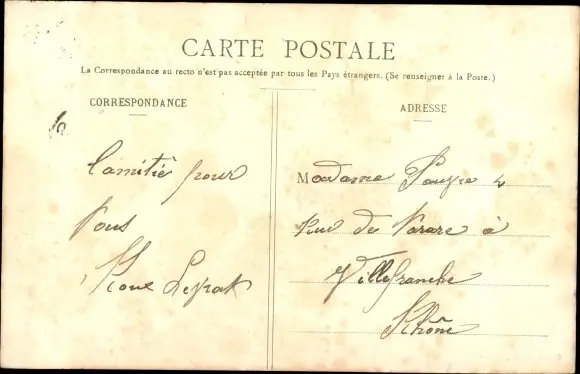 CARTE POSTALE
La Correspondance au recto n'est pas acceptée par tous les Pays étrangers. (Se renseigner à la Poste.)
CORRESPONDANCE
ADRESSE
L'amitié pour
Vous
Madame 4
Rue de à
Villefranche
Rhône